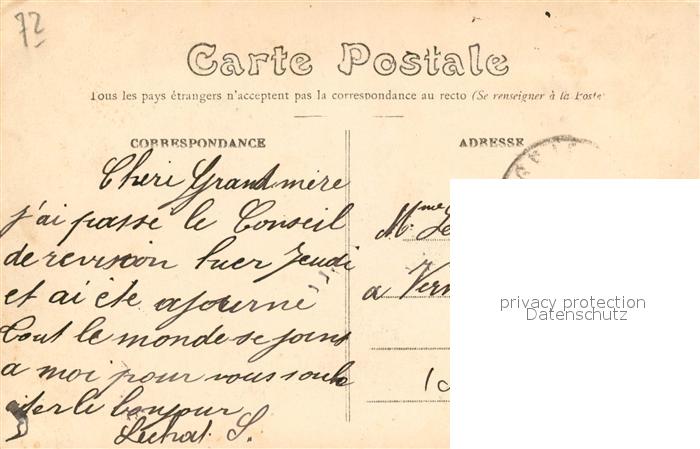 72
Carte Postale
Tous les pays étrangers n'acceptent pas la correspondance au recto (Se renseigner à la Poste
CORRESPONDANCE
Cheri Grand mere
j'ai passé le Conseil
de revision hier Jeudi
et ai été ajourne
Tout le monde se joint
a moi pour vous souha
iter le bonjour
S.
ADRESSE
Mme
a Vern
privacy protection
Datenschutz